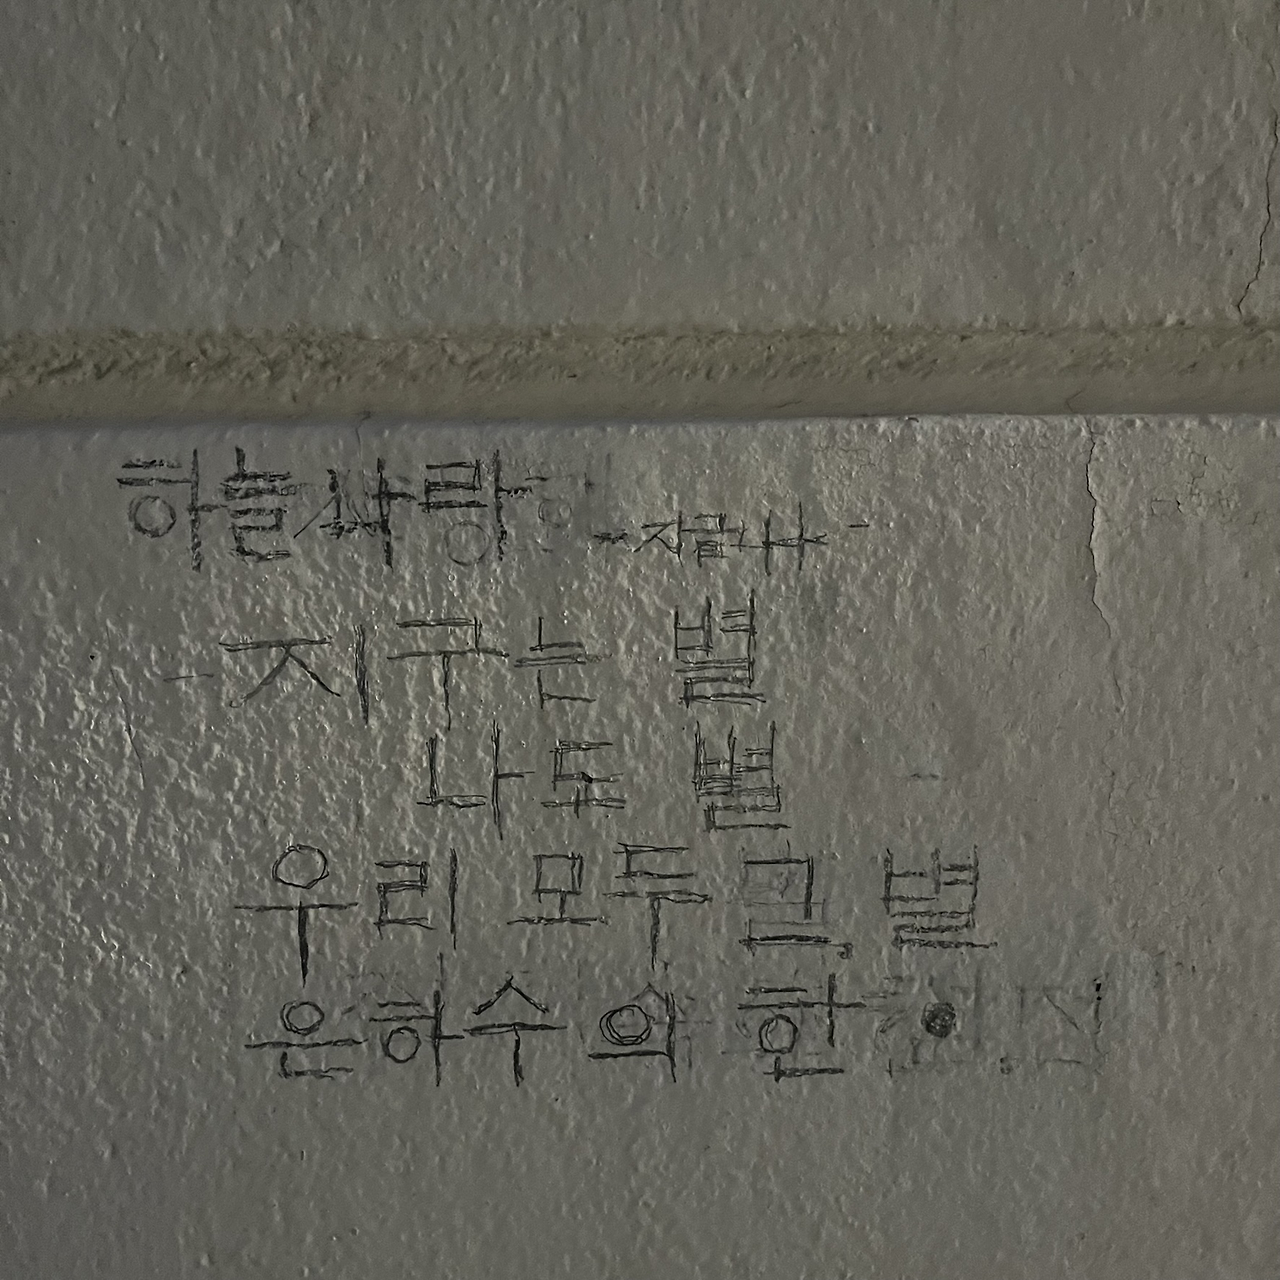 하늘사랑
지구는 별
나도 별
우리 모두 별
은하수의 한